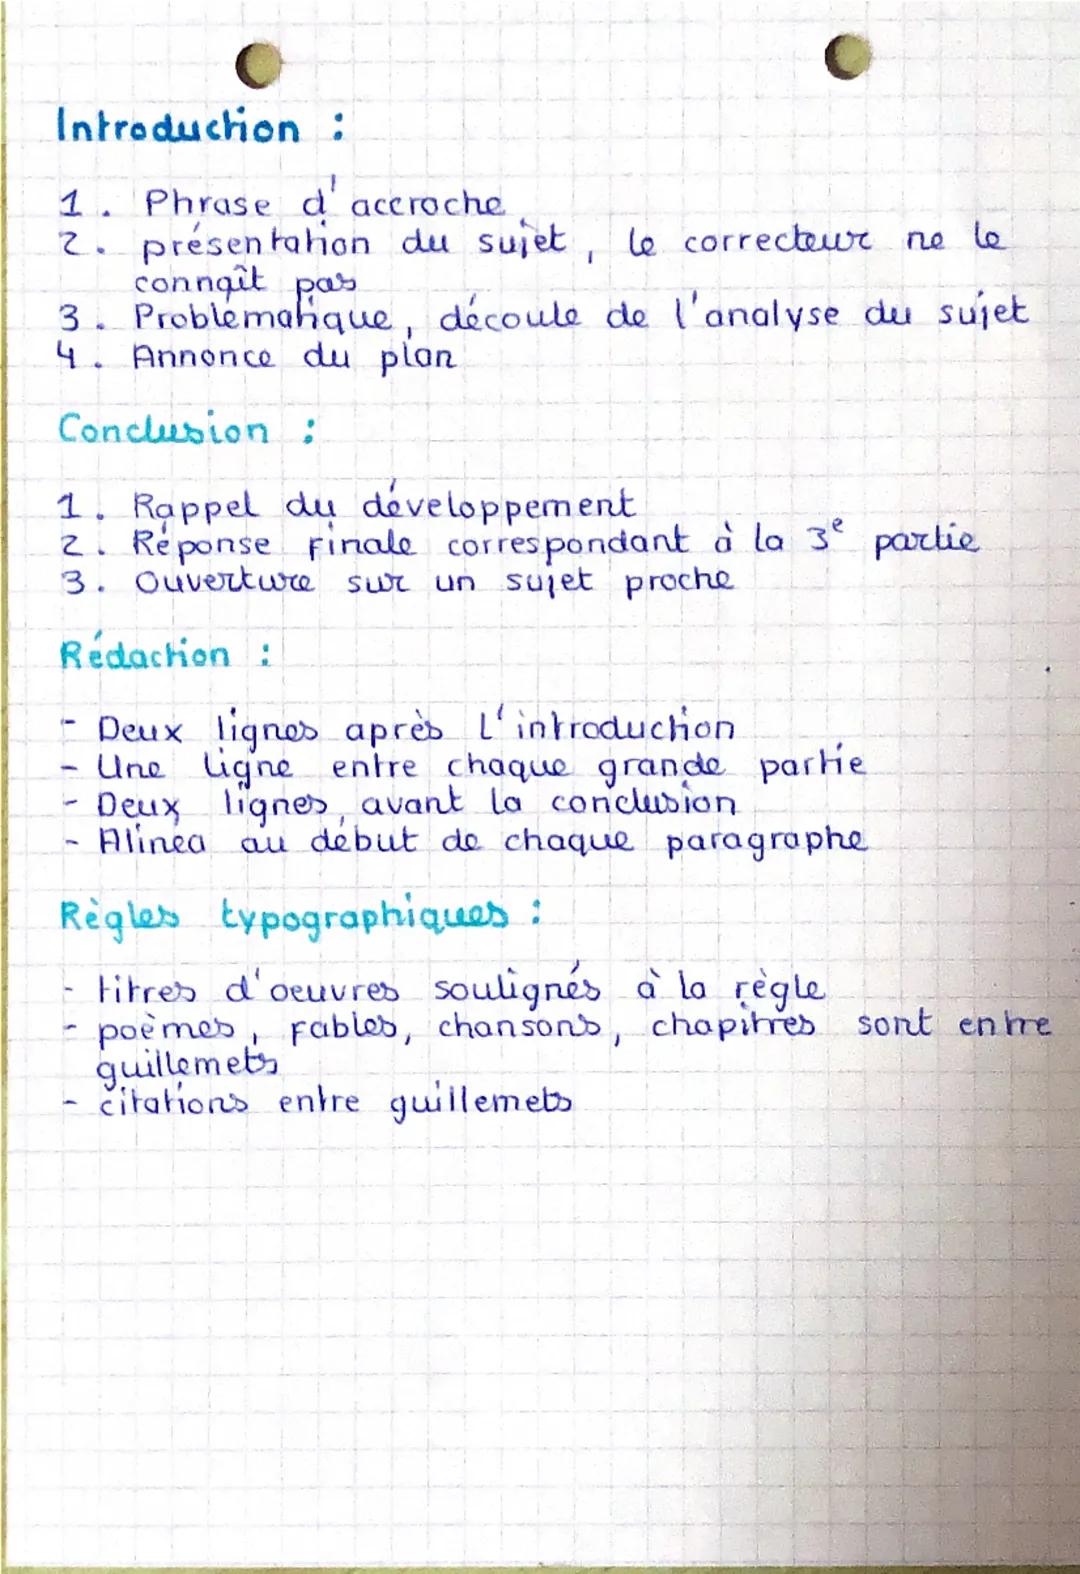 Introduction :
1. Phrase d'accroche
2. présentation du sujet, le correcteur ne le
connaît pas
3. Problématique, découle de l'analyse du sujet
4. Annonce du plan
Conclusion :
1. Rappel du développement
2. Réponse finale correspondant à la 3e partie
3. Ouverture sur un sujet proche
Rédaction :
- Deux lignes après l'introduction
- Une ligne entre chaque grande partie
- Deux lignes avant la conclusion
- Alinéa au début de chaque paragraphe
Règles typographiques :
- titres d'oeuvres soulignés à la règle
- poèmes, fables, chansons, chapitres sont entre
guillemets
- citations entre guillemets